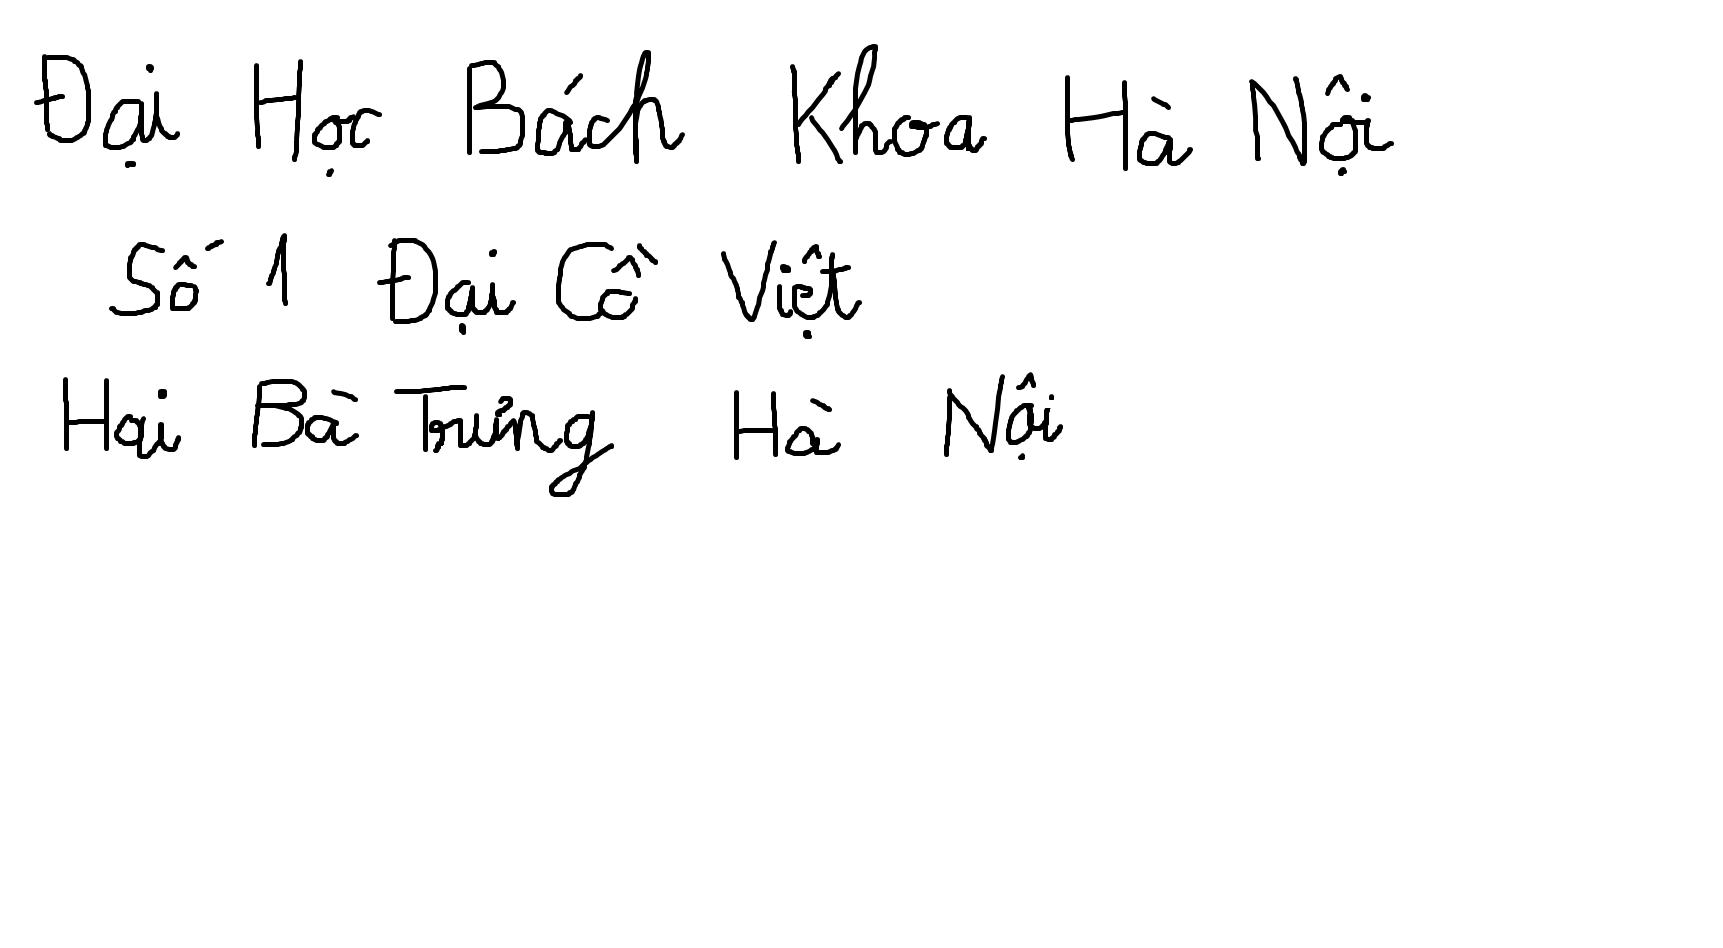 Đại Học Bách Khoa Hà Nội
Số 1 Đại Cồ Việt
Hai Bà Trưng Hà Nội